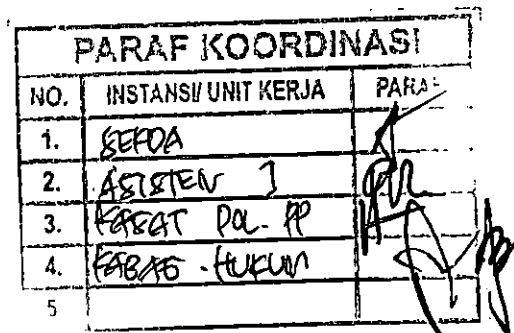 PARAF KOORDINASI
NO. INSTANSI/ UNIT KERJA PARAF
1. SEKDA
2. ASISTEN I
3. KASAT POL. PP
4. KABAG . HUKUM
5